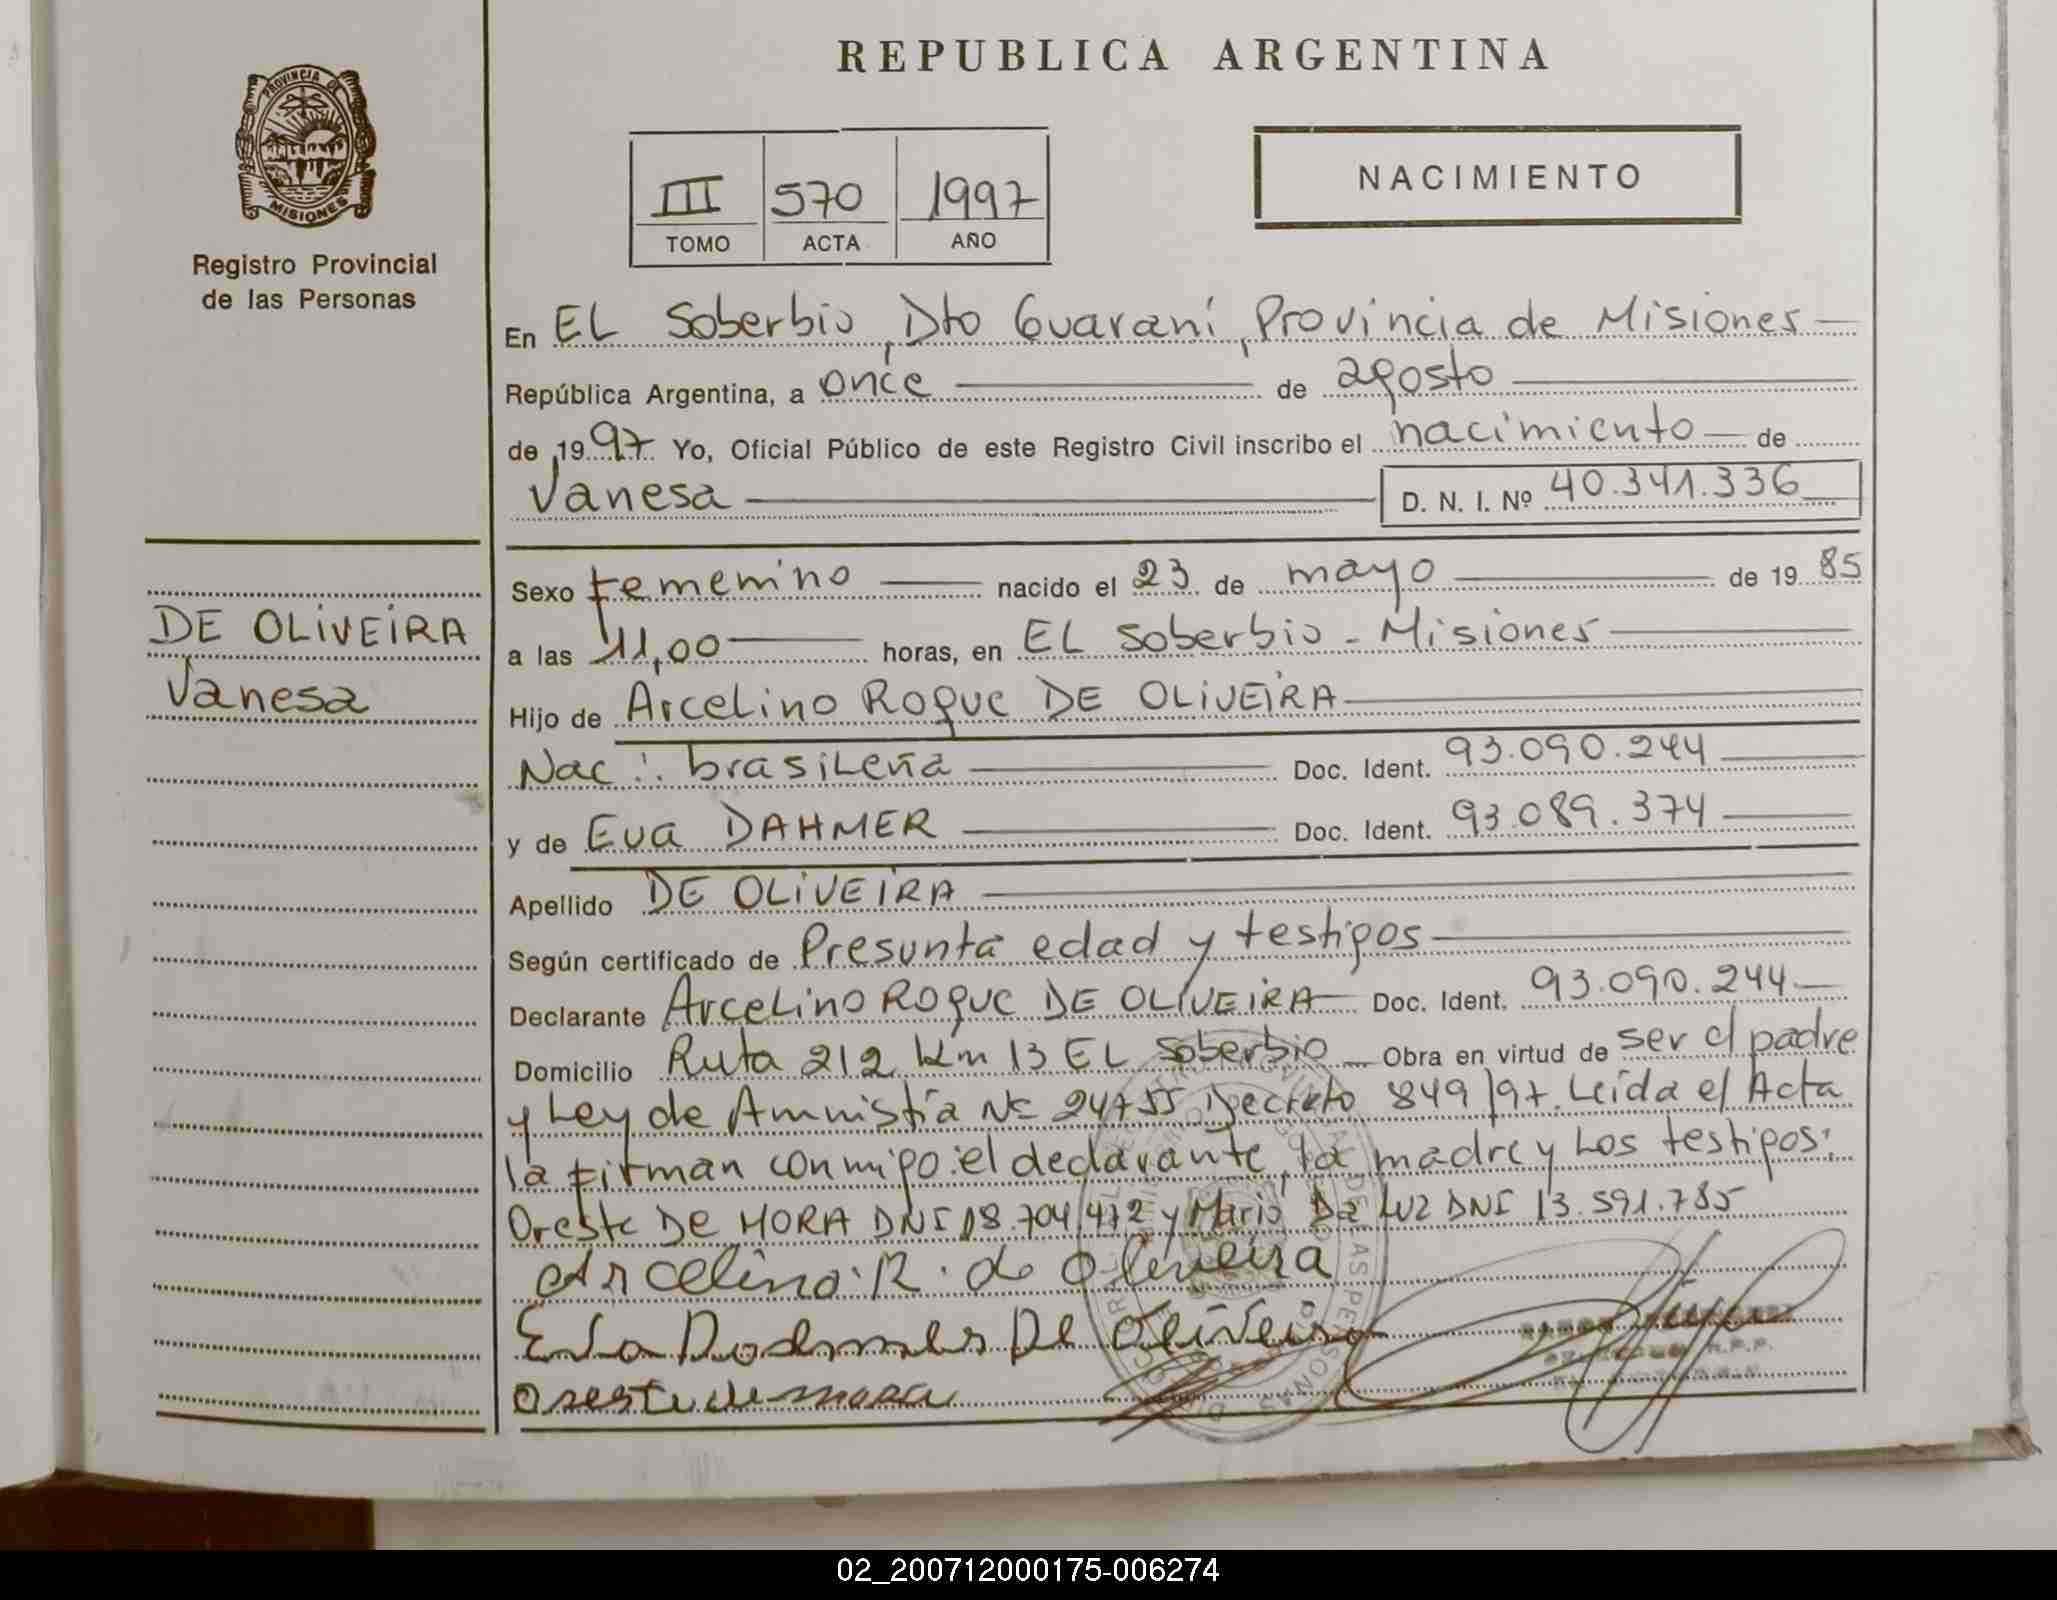 REPUBLICA ARGENTINA
PROVINCIA DE
MISIONES
Registro Provincial
de las Personas
III 570 1997
TOMO ACTA AÑO
NACIMIENTO
En EL Soberbio, Dto Guaraní, Provincia de Misiones
República Argentina, a once de agosto
de 1997 Yo, Oficial Público de este Registro Civil inscribo el nacimiento de
Vanesa D. N. I. Nº 40.341.336
DE OLIVEIRA
Vanesa
Sexo femenino nacido el 23 de mayo de 1985
a las 11,00 horas, en EL Soberbio - Misiones
Hijo de Arcelino Roque DE OLIVEIRA
Nac: brasileña Doc. Ident. 93.090.244
y de Eva DAHMER Doc. Ident. 93.089.374
Apellido DE OLIVEIRA
Según certificado de Presunta edad y testigos
Declarante Arcelino Roque DE OLIVEIRA Doc. Ident. 93.090.244
Domicilio Ruta 212 Km 13 EL Soberbio Obra en virtud de ser el padre
y Ley de Amnistía Nº 24755 Decreto 849/97. Leída el Acta
la firman conmigo: el declarante, la madre y Los testigos:
Oreste DE MORA DNI 18.704.472 y Mario Da Luz DNI 13.591.785
Arcelino. R. de Oliveira
De Oliveira
Oreste de mora
02_200712000175-006274